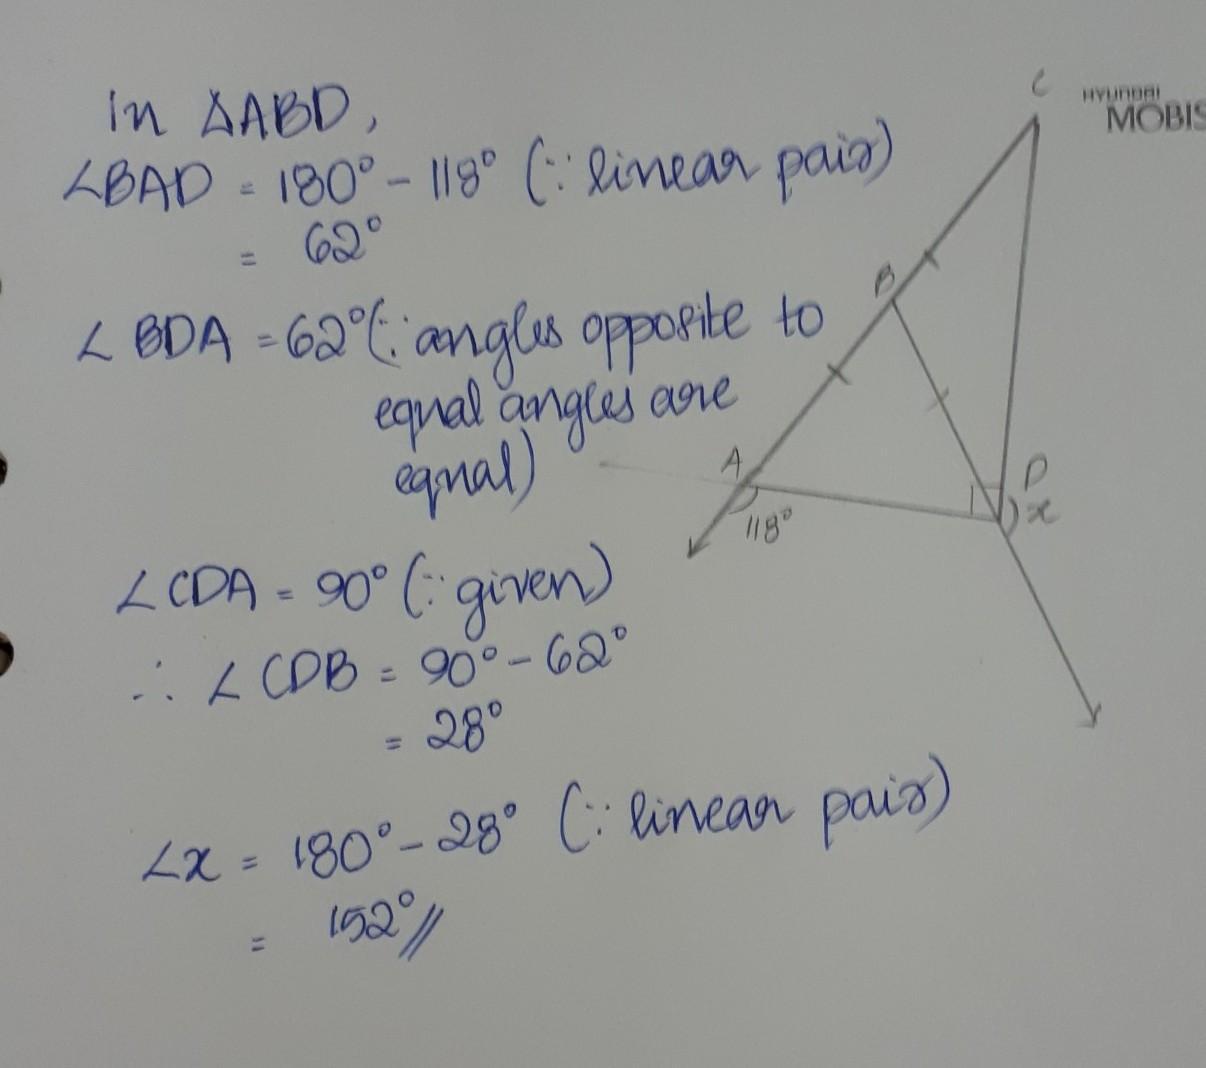 In ΔABD,
∠BAD = 180° - 118° (∵ linear pair)
= 62°
∠BDA = 62° (∵ angles opposite to
equal angles are
equal)
∠CDA = 90° (∵ given)
∴ ∠CDB = 90° - 62°
= 28°
∠x = 180° - 28° (∵ linear pair)
= 152°//
C
HYUNDAI
MOBIS
B
A
D
x
118°